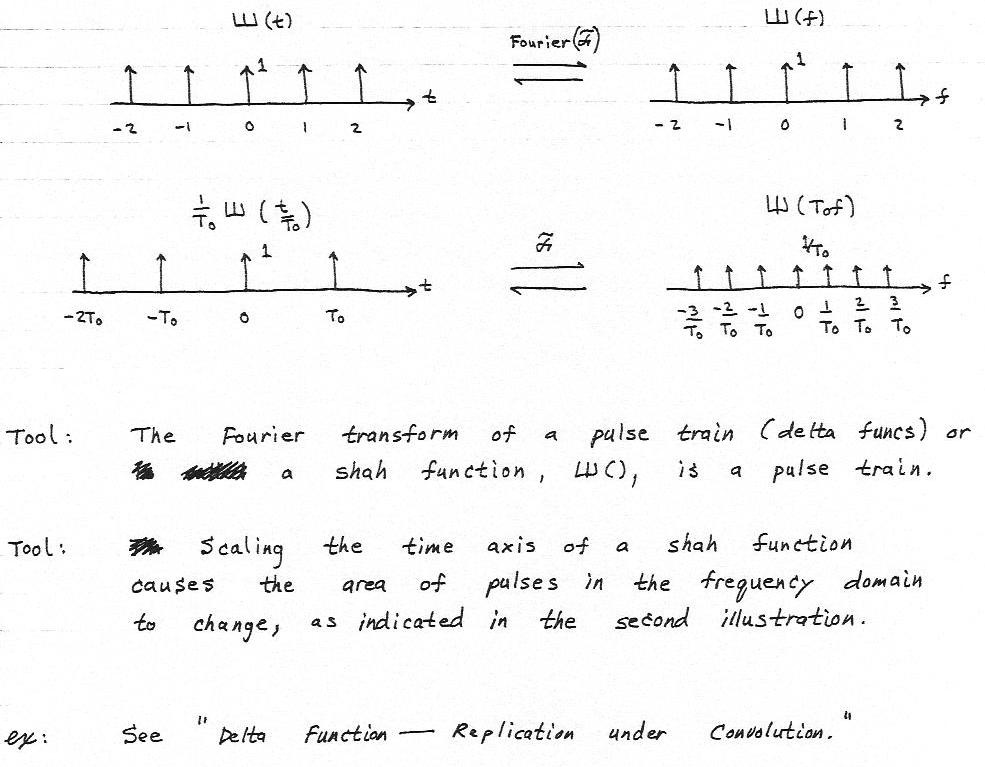 Ш(t) Ш(f)
Fourier(ℱ)
1 1
t f
-2 -1 0 1 2 -2 -1 0 1 2
1/T₀ Ш(t/T₀) Ш(T₀f)
ℱ
1 1/T₀
t f
-2T₀ -T₀ 0 T₀ -3/T₀ -2/T₀ -1/T₀ 0 1/T₀ 2/T₀ 3/T₀
Tool: The Fourier transform of a pulse train (delta funcs) or
a shah function, Ш(), is a pulse train.
Tool: Scaling the time axis of a shah function
causes the area of pulses in the frequency domain
to change, as indicated in the second illustration.
ex: See "Delta Function — Replication under Convolution."